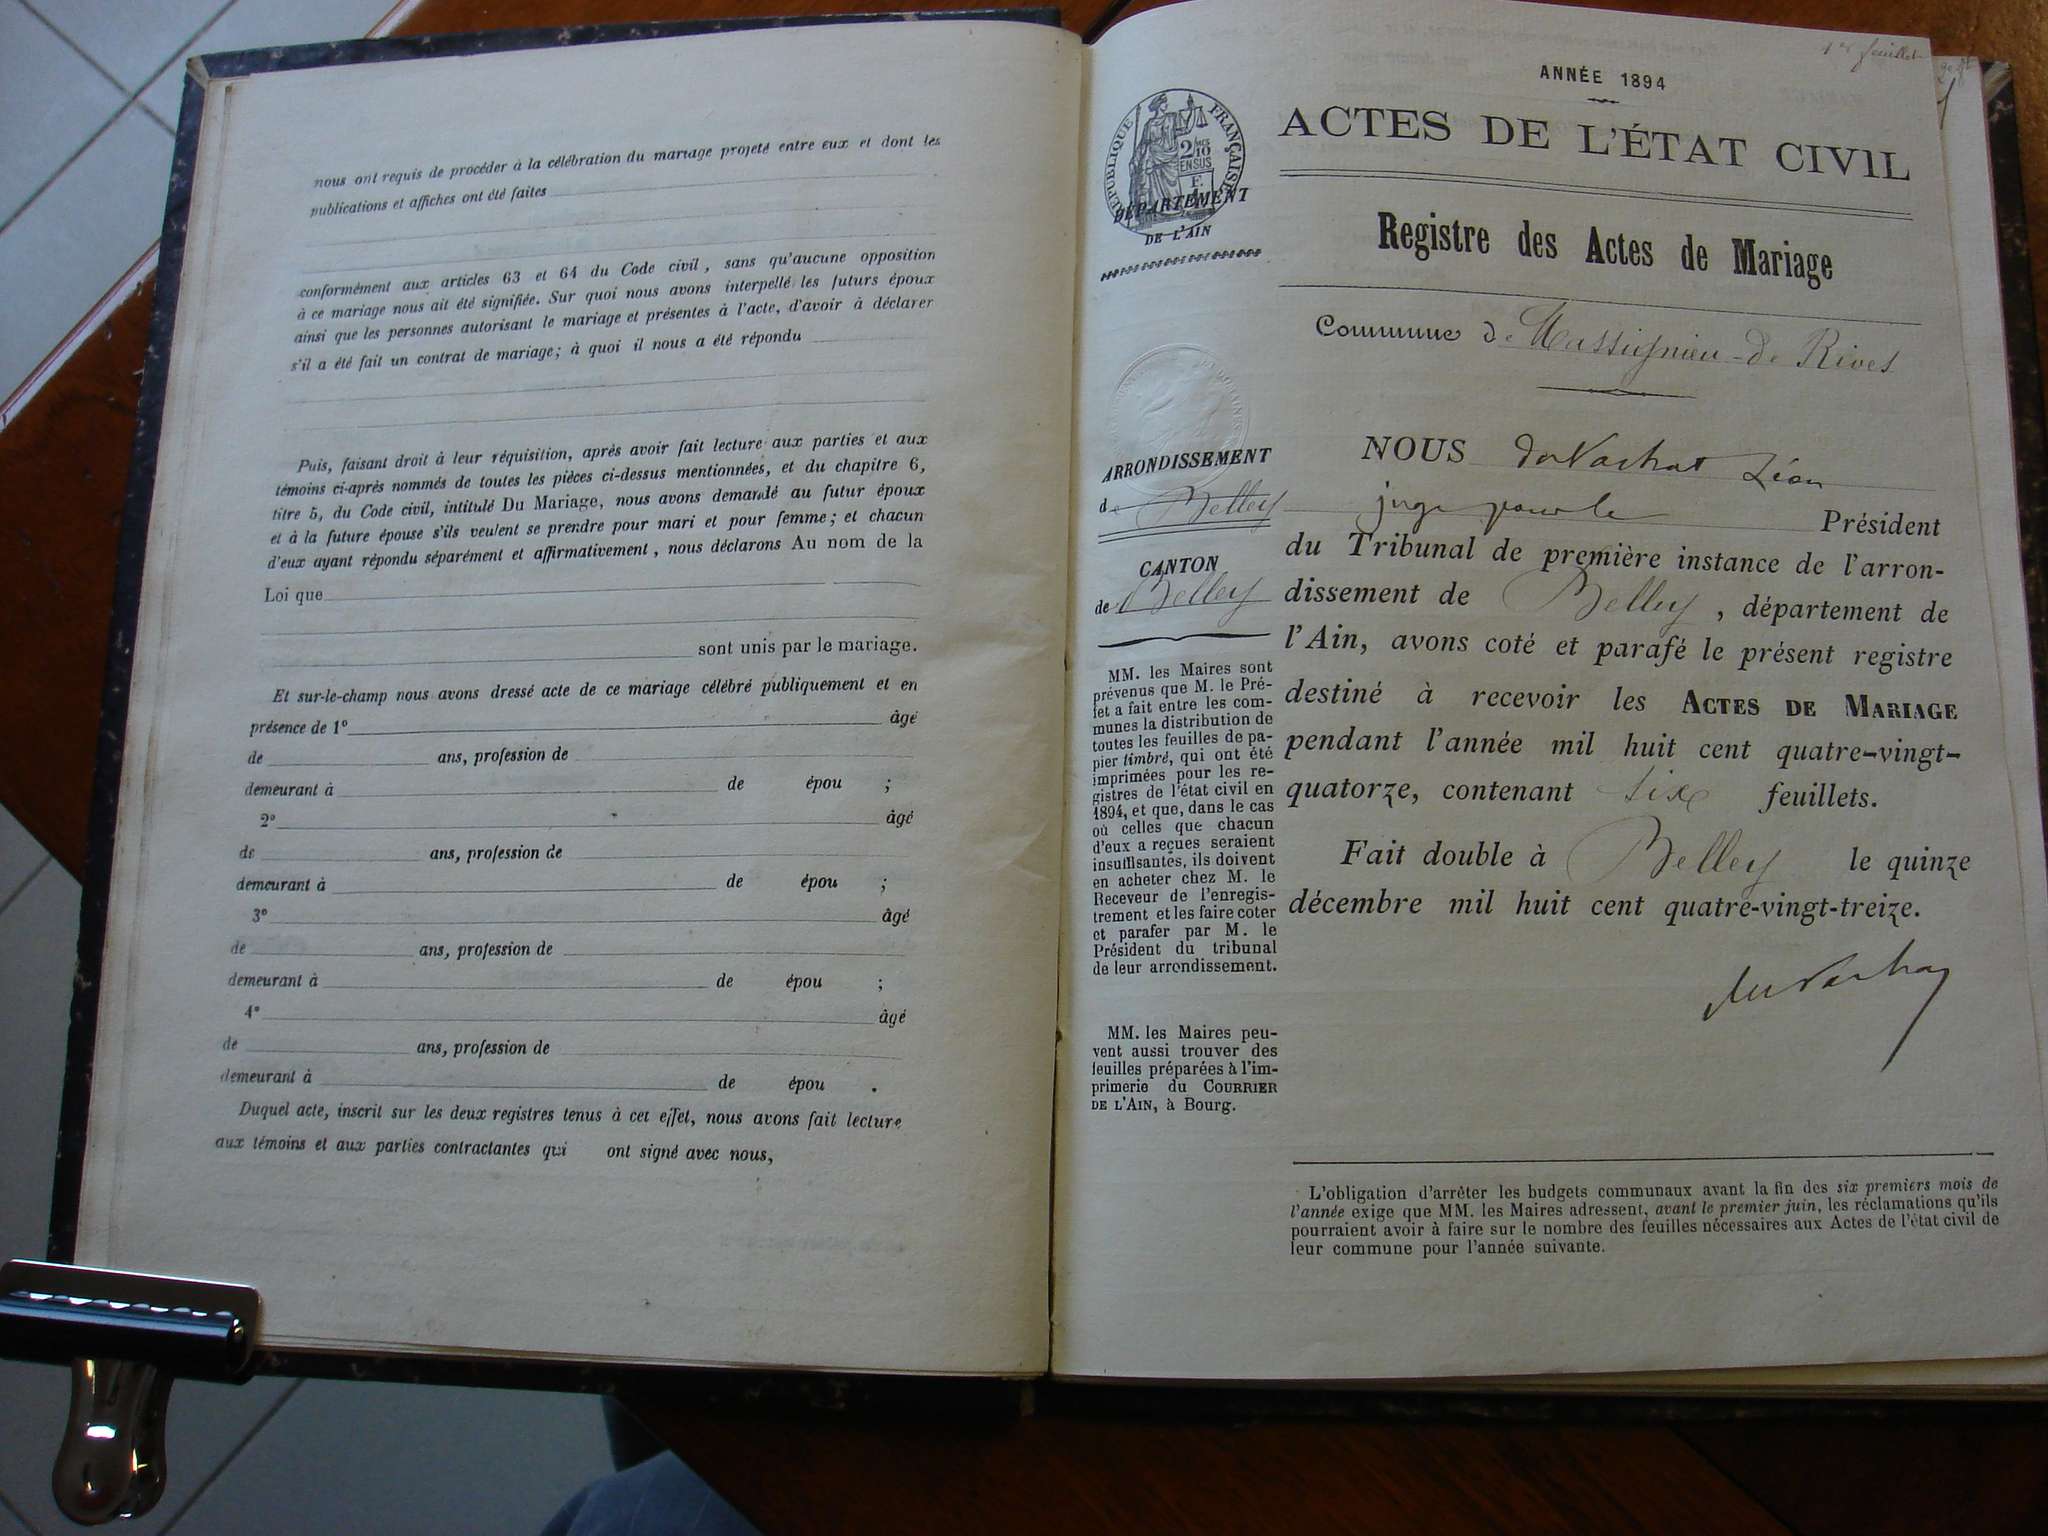 nous ont requis de procéder à la célébration du mariage projeté entre eux et dont les
publications et affiches ont été faites
conformément aux articles 63 et 64 du Code civil, sans qu'aucune opposition
à ce mariage nous ait été signifiée. Sur quoi nous avons interpellé les futurs époux
ainsi que les personnes autorisant le mariage et présentes à l'acte, d'avoir à déclarer
s'il a été fait un contrat de mariage; à quoi il nous a été répondu
Puis, faisant droit à leur réquisition, après avoir fait lecture aux parties et aux
témoins ci-après nommés de toutes les pièces ci-dessus mentionnées, et du chapitre 6,
titre 5, du Code civil, intitulé Du Mariage, nous avons demandé au futur époux
et à la future épouse s'ils veulent se prendre pour mari et pour femme; et chacun
d'eux ayant répondu séparément et affirmativement, nous déclarons Au nom de la
Loi que
sont unis par le mariage.
Et sur-le-champ nous avons dressé acte de ce mariage célébré publiquement et en
présence de 1° âgé
de ans, profession de
demeurant à de épou ;
2° âgé
de ans, profession de
demeurant à de épou ;
3° âgé
de ans, profession de
demeurant à de épou ;
4° âgé
de ans, profession de
demeurant à de épou .
Duquel acte, inscrit sur les deux registres tenus à cet effet, nous avons fait lecture
aux témoins et aux parties contractantes qui ont signé avec nous,
1er feuillet
ANNÉE 1894
ACTES DE L'ÉTAT CIVIL
Registre des Actes de Mariage
Commune de Massignieu-de Rives
RÉPUBLIQUE FRANÇAISE
2/10
EN SUS
DÉPARTEMENT
DE L'AIN
ARRONDISSEMENT
de Belley
CANTON
de Belley
MM. les Maires sont
prévenus que M. le Pré-
fet a fait entre les com-
munes la distribution de
toutes les feuilles de pa-
pier timbré, qui ont été
imprimées pour les re-
gistres de l'état civil en
1894, et que, dans le cas
où celles que chacun
d'eux a reçues seraient
insuffisantes, ils doivent
en acheter chez M. le
Receveur de l'enregis-
trement et les faire coter
et parafer par M. le
Président du tribunal
de leur arrondissement.
MM. les Maires peu-
vent aussi trouver des
feuilles préparées à l'im-
primerie du COURRIER
DE L'AIN, à Bourg.
NOUS duVachat Léon
juge pour le Président
du Tribunal de première instance de l'arron-
dissement de Belley, département de
l'Ain, avons coté et parafé le présent registre
destiné à recevoir les ACTES DE MARIAGE
pendant l'année mil huit cent quatre-vingt-
quatorze, contenant six feuillets.
Fait double à Belley le quinze
décembre mil huit cent quatre-vingt-treize.
duVachat
L'obligation d'arrêter les budgets communaux avant la fin des six premiers mois de
l'année exige que MM. les Maires adressent, avant le premier juin, les réclamations qu'ils
pourraient avoir à faire sur le nombre des feuilles nécessaires aux Actes de l'état civil de
leur commune pour l'année suivante.